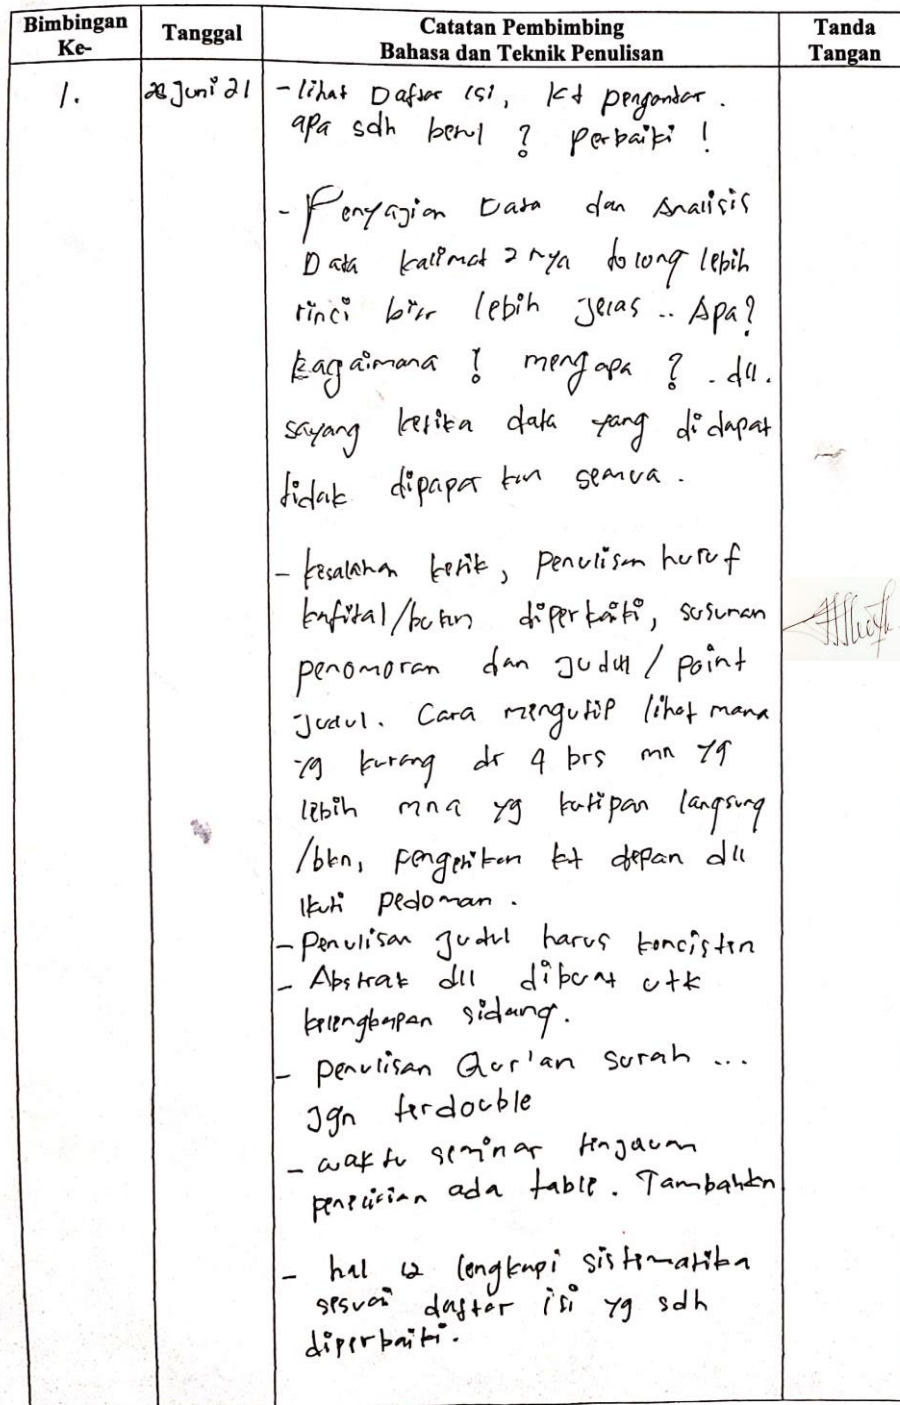 Bimbingan Ke-
Tanggal
Catatan Pembimbing
Bahasa dan Teknik Penulisan
Tanda Tangan
1.
28 Juni 21
- lihat Daftar isi, kt pengantar.
apa sdh betul ? Perbaiki !
- Penyajian Data dan Analisis
Data kalimat2nya tolong lebih
rinci biar lebih jelas .. Apa?
Bagaimana ? mengapa ? . dll.
sayang ketika data yang didapat
tidak dipaparkan semua.
- kesalahan ketik, penulisan huruf
kafital/bukan diperbaiki, susunan
penomoran dan judul / point
judul. Cara mengutip lihat mana
yg kurang dr 4 brs mn yg
lebih mna yg kutipan langsung
/bkn, pengetikan kt depan dll
ikuti pedoman.
- Penulisan judul harus koncisten
- Abstrak dll dibuat utk
kelengkapan sidang.
- penulisan Qur'an surah ...
jgn terdouble
- waktu seminar tinjauan
penelitian ada table. Tambahkn
- hal 12 lengkapi sistematika
sesuai daftar isi yg sdh
diperbaiki.